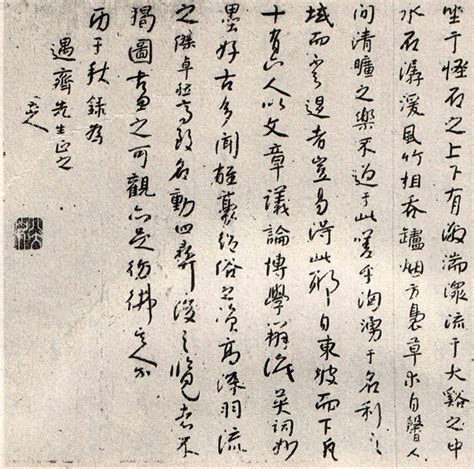 坐于怪石之上下有激湍潨流于大谿之中
水石潺湲風竹相吞爐烟方裊草木自馨人
间清曠之樂不過于此嗟乎洶湧于名利之
域而不退者豈易得此耶自東坡而下凡
十有六人以文章議論博學辨識英詞妙
墨好古多聞雄豪絕俗之資高深羽流
之傑卓然高致名動四彝後之覽者不
獨圖畫之可觀亦足彷彿其人尔
丙子秋錄為
遇齊先生正之
八大山人